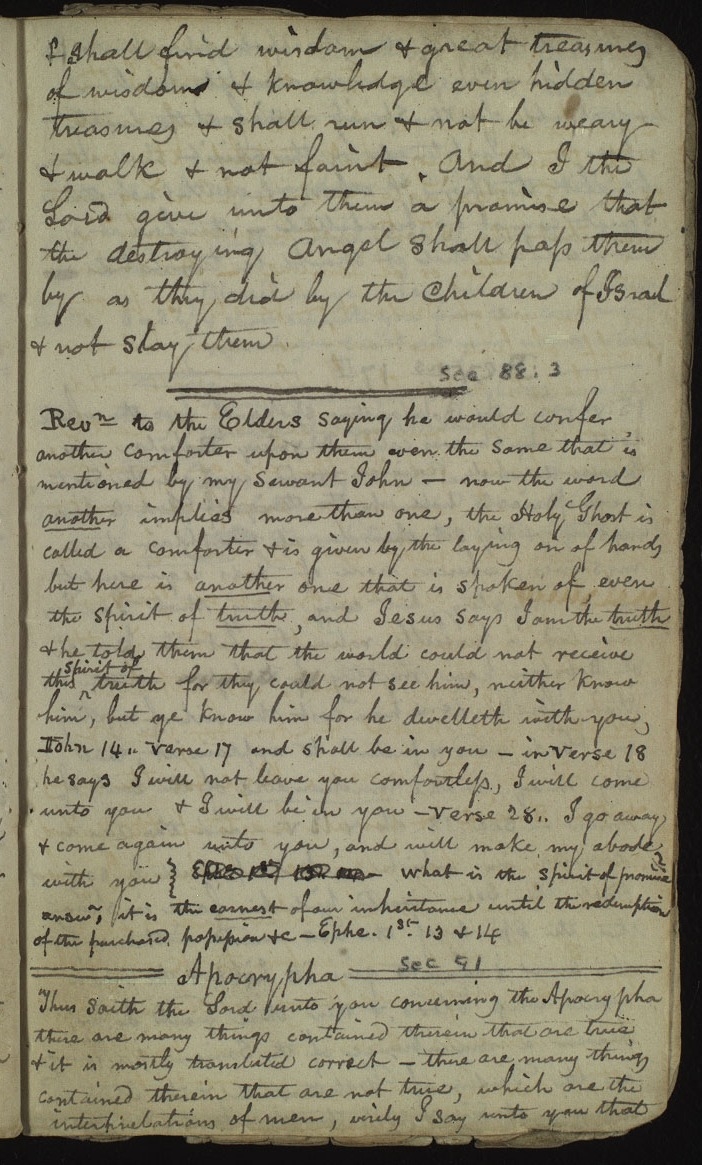 & shall find wisdom & great treasures
of wisdom & knowledge even hidden
treasures & shall run & not be weary
& walk & not faint. And I the
Lord give unto them a promise that
the destroying Angel shall pass them
by as they did by the Children of Israel
& not slay them
Sec 88.3
Revn to the Elders saying he would confer
another comforter upon them even the same that is
mentioned by my servant John — now the word
another implies more than one, the Holy Ghost is
called a comforter & is given by the laying on of hands
but here is another one that is spoken of, even
the spirit of truth, and Jesus says I am the truth
& he told them that the world could not receive
this spirit of truth for they could not see him, neither know
him, but ye know him for he dwelleth with you,
John 14.. Verse 17 and shall be in you — in verse 18
he says I will not leave you comfortless, I will come
unto you & I will be in you — Verse 28.. I go away
& come again unto you, and will make my abode
with you } what is the spirit of promise
answr, it is the earnest of our inheritance until the redemption
of the purchased possession &c — Ephe. 1st. 13 & 14
Apocrypha Sec 91
Thus saith the Lord unto you concerning the Apocrypha
there are many things contained therein that are true
& it is mostly translated correct — there are many things
contained therein that are not true, which are the
interpretations of men, verily I say unto you that